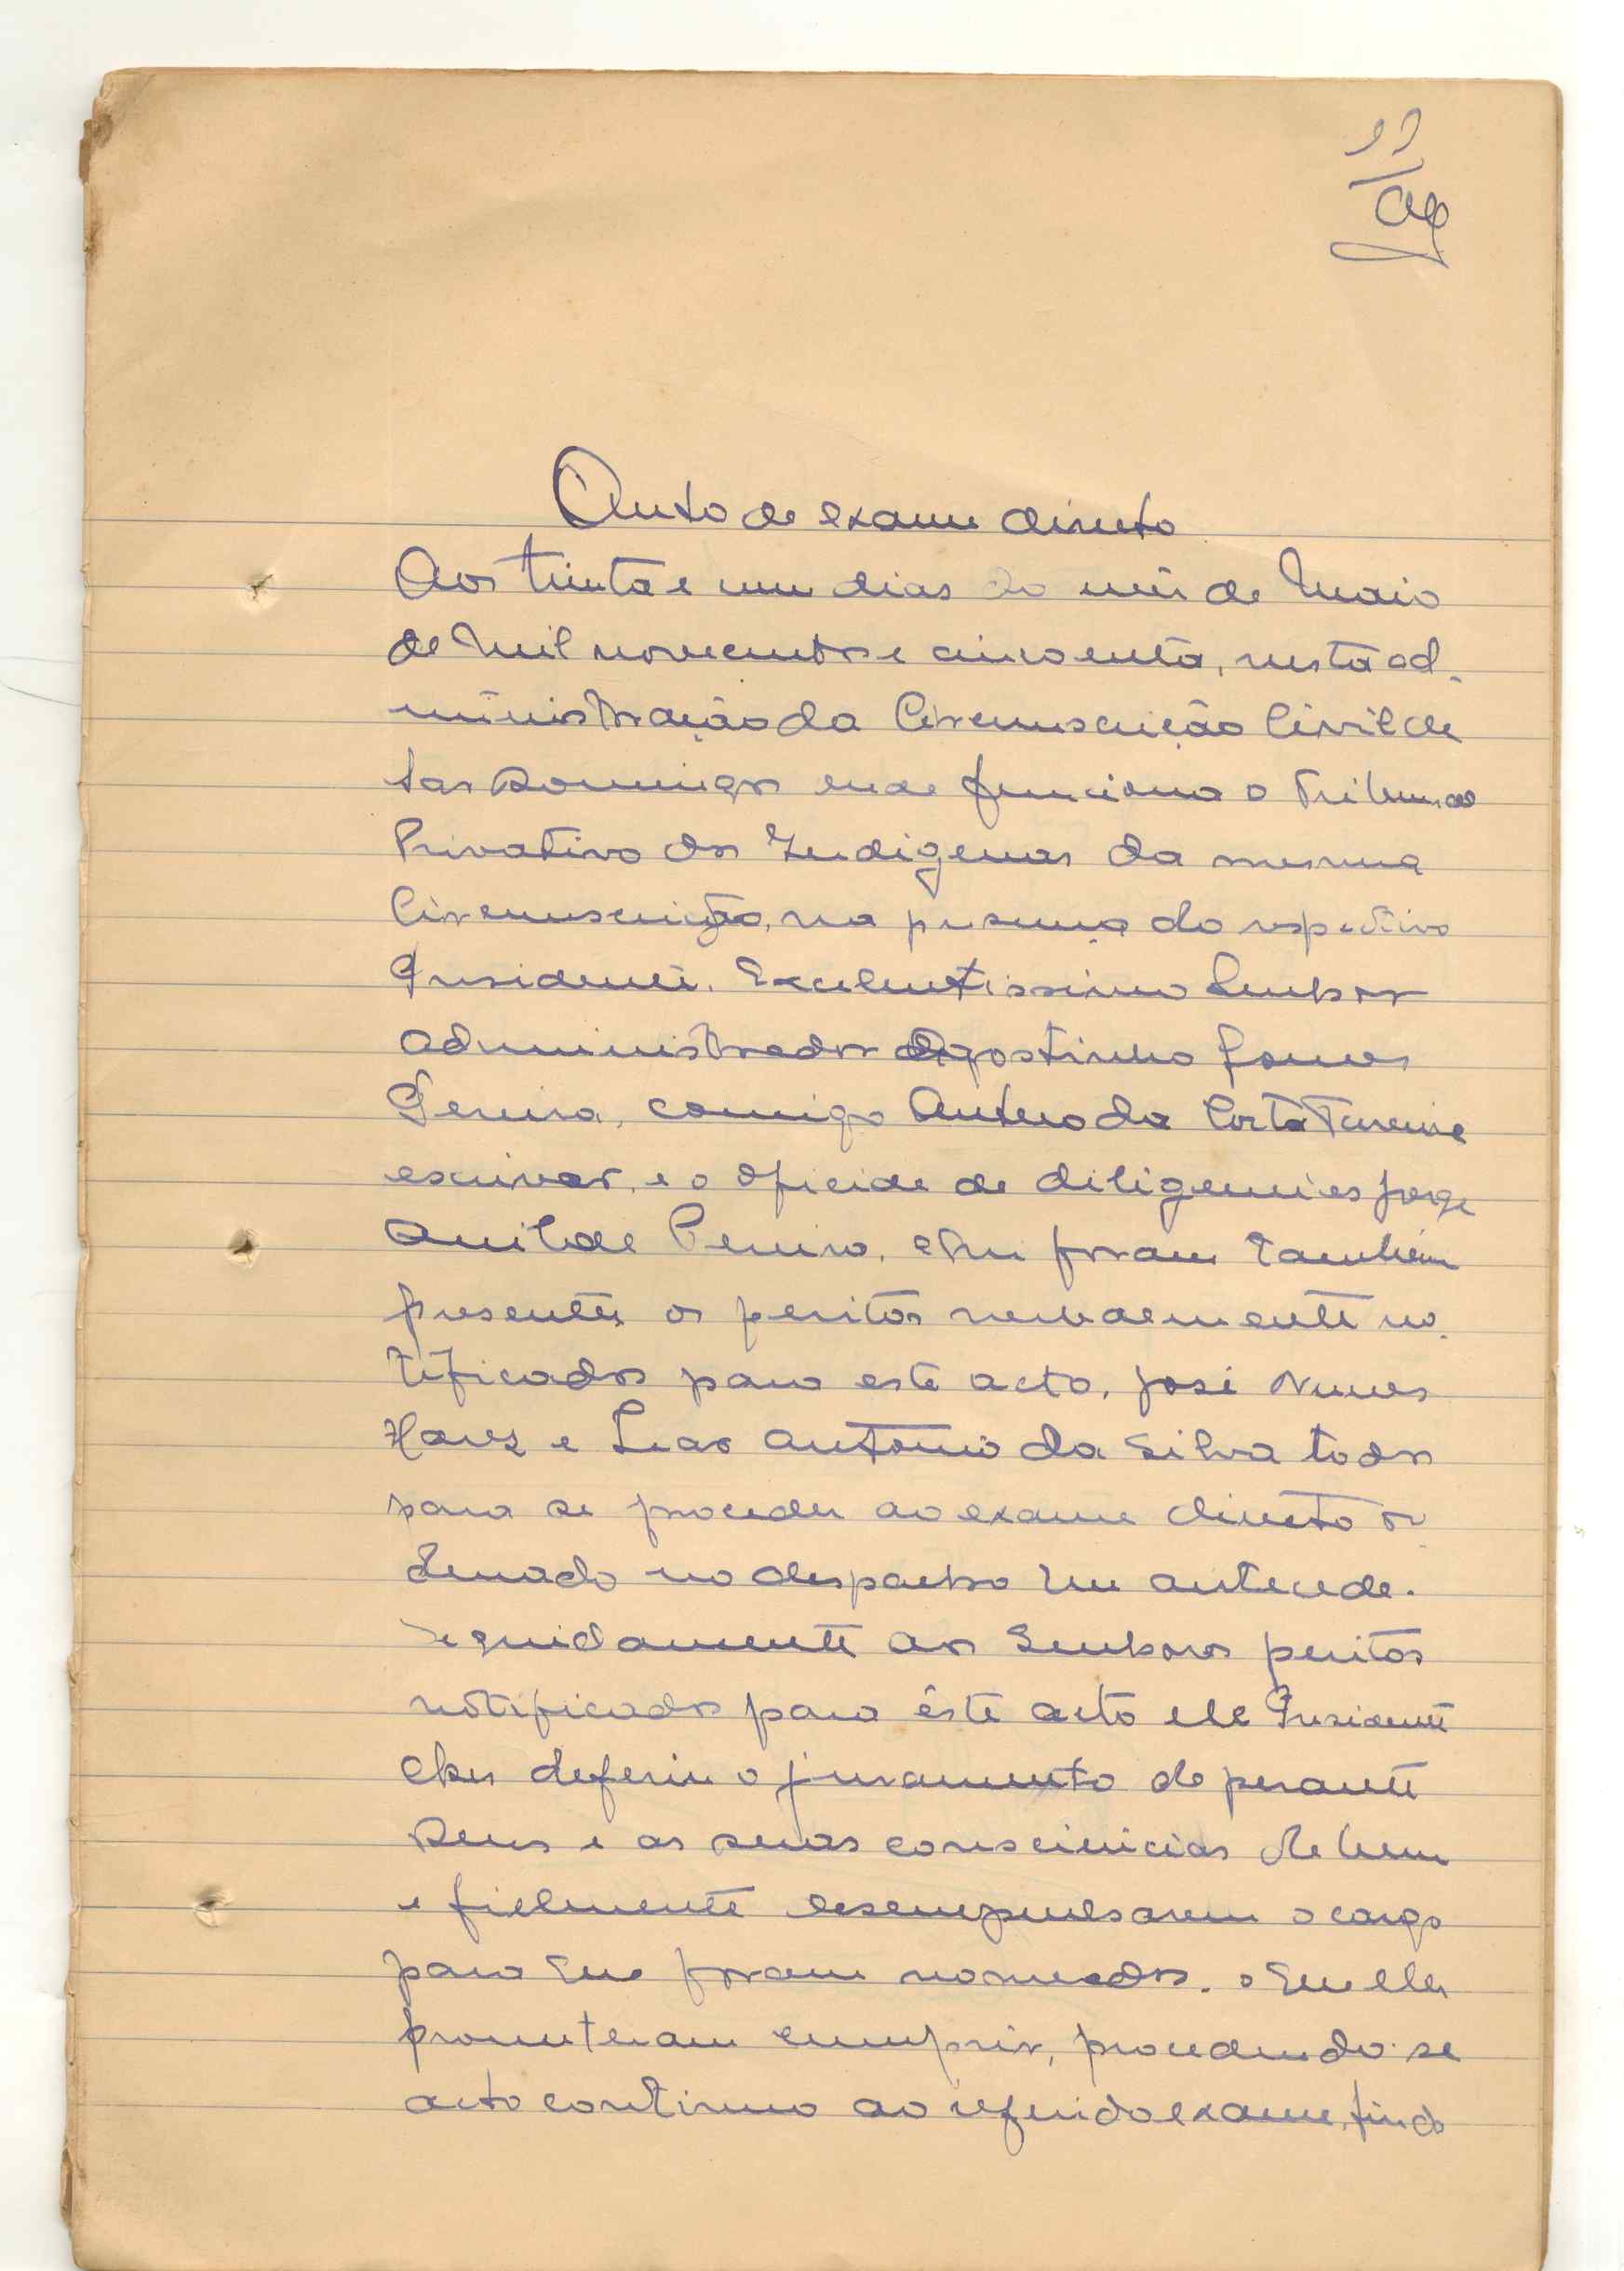 11
Auto de exame directo
Aos trinta e um dias do mês de Maio
de mil novecentos e cincoenta, nesta ad-
ministração da Circunscrição Civil de
São Domingos onde funciona o Tribunal
Privativo dos Indigenas da mesma
Circunscrição, na presença do respectivo
Presidente, Excelentissimo Senhor
administrador Agostinho Gomes
Pereira, comigo Antero da Costa
escrivão, e o oficial de diligencias Jorge
Pereira, foram também
presentes os peritos verbalmente no-
tificados para este acto, José Nunes
e Leão António da Silva todos
para se proceder ao exame directo or-
denado no despacho que antecede.
Seguidamente aos Senhores peritos
notificados para êste acto ele Presidente
lhes deferiu o juramento de perante
Deus e as suas consciências de bem
e fielmente desempenharem o cargo
para que foram nomeados, o que eles
prometeram cumprir, procedendo-se
acto continuo ao referido exame, findo